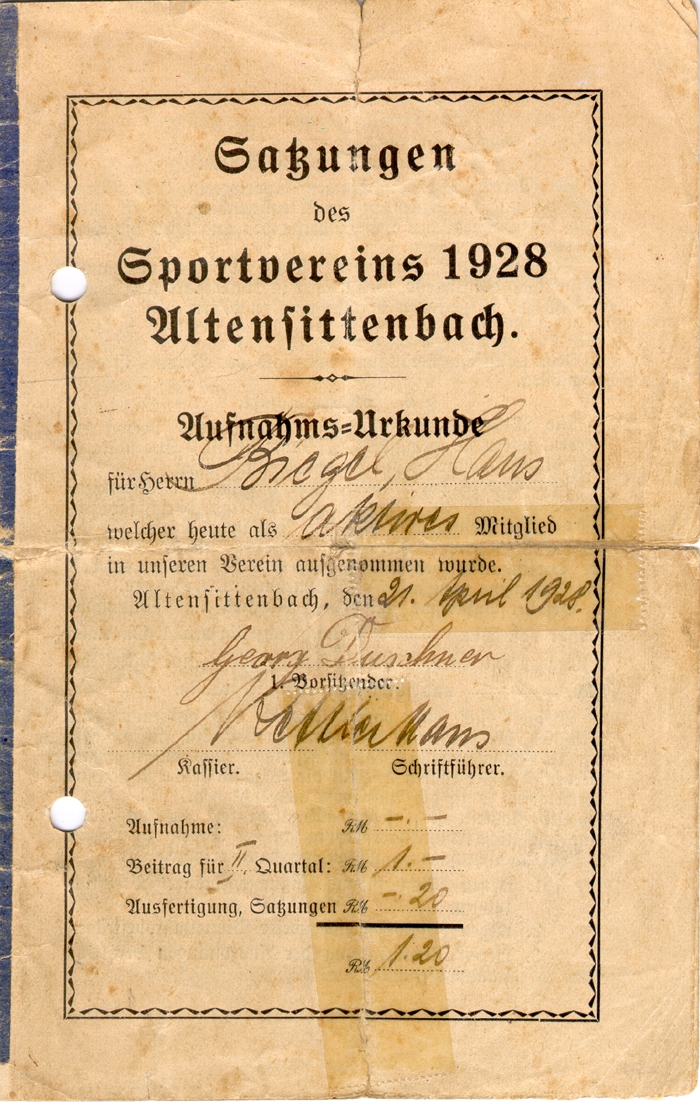 Satzungen
des
Sportvereins 1928
Altensittenbach.
Aufnahms-Urkunde
für Herrn Biegel, Hans
welcher heute als aktives Mitglied
in unseren Verein aufgenommen wurde.
Altensittenbach, den 21. April 1928.
Georg Duschner
1. Vorsitzender.
Hans
Kassier. Schriftführer.
Aufnahme: RM -.-
Beitrag für II. Quartal: RM 1.-
Ausfertigung, Satzungen RM -.20
RM 1.20